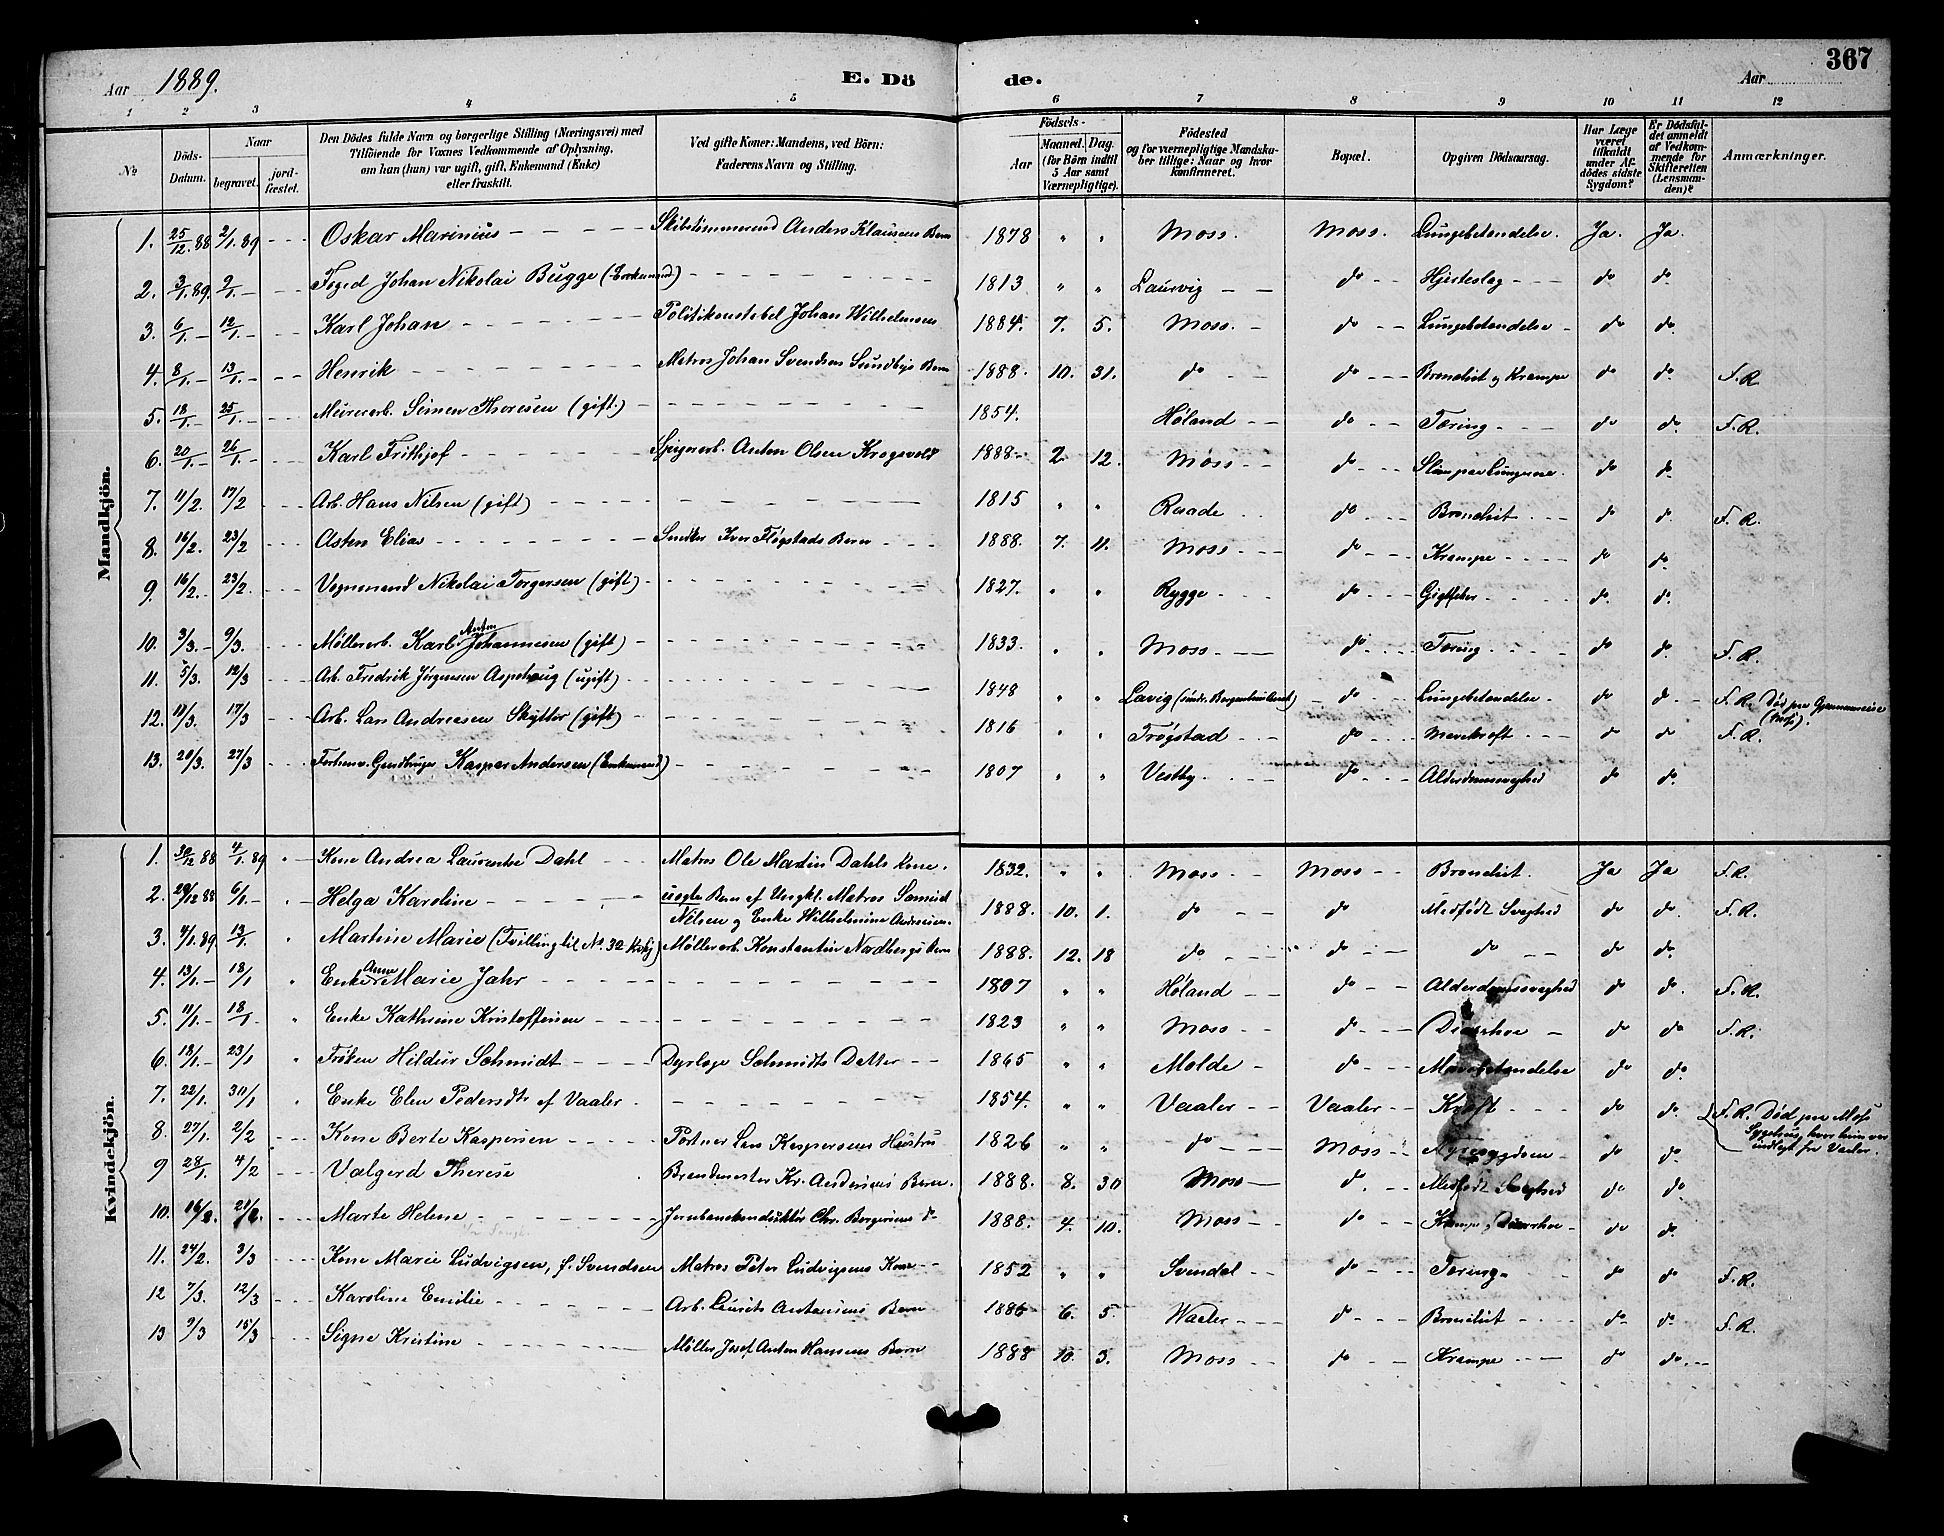 Aar 1889. E. Dö de. Aar 367
1 2 3 4 5 6 7 8 9 10 11 12
No
Döds-Datum.
Naar begravet. jordfæstet.
Den Dödes fulde Navn og borgerlige Stilling (Næringsvei) med
Tilföiende for Voxnes Vedkommende af Oplysning,
om han (hun) var ugift, gift, Enkemand (Enke)
eller fraskilt.
Ved gifte Koner: Mandens, ved Börn:
Faderens Navn og Stilling.
Födsels-
Aar Maaned. Dag.
(for Börn indtil
5 Aar samt
Værnepligtige).
Födested
og for værnepligtige Mandska-
ber tillige: Naar og hvor
konfirmeret.
Bopæl.
Opgiven Dödsaarsag.
Har Læge
været
tilkaldt
under Af-
dödes sidste
Sygdom?
Er Dödsfal-
det anmeldt
af Vedkom-
mende for
Skifteretten
(Lensman-
den)?
Anmærkninger.
Mandkjön.
1. 25/12.88 2/1.89 Oskar Marinius Skibstømmermd Anders Klausens Barn 1878 " " Moss. Moss. Lungebetændelse. Ja. Ja.
2. 3/1.89. 9/1. Foged Johan Nikolai Bugge (Enkemand) 1813 " " Laurvig do Hjerteslag do do.
3. 6/1. 12/1. Karl Johan Politikonstabel Johan Wilhelmsens 1884. 7. 5. Moss. do Lungebetændelse do do.
4. 8/1. 13/1. Henrik Matros Johan Svendsens Sundbys Barn 1888. 10. 31. do do Bronchit og Krampe do do. F.R.
5. 18/1. 25/1. Murerarb. Simen Thoresen (gift.) 1854. Høland do Tæring do do. F.R.
6. 20/1. 26/1. Karl Frithjof Spigerarb. Anton Olsen Krogsvold 1888 2. 12. Moss do Slim paa Lungerne. do do.
7. 11/2. 17/2 Arb. Hans Nilsen (gift) 1815 " " Raade do Bronchit do do. F.R.
8. 16/2. 23/2 Asten Elias Snedker Iver Fløgstads Barn 1888. 7. 11. Moss do Krampe do do.
9. 16/2. 23/2. Vognmand Nikolai Torgersen (gift) 1827. " " Rygge do Gigtfeber do. do.
10. 3/3. 9/3. Møllerarb. Karl Anton Johannesen (gift) 1833. " " Moss do Tæring do do. F.R.
11. 5/3. 12/3 Arb. Fredrik Jørgensen Aspehaug (ugift) 1848 " " Lavig (søndr. Bergenhus Amt) do Lungebetændelse. do do. F.R. Død paa Gjennemreise
(Moss).
12. 11/3. 17/3 Arb. Lars Andreasen Skytter (gift) 1816 " " Trøgstad do Mavekræft do do F.R.
13. 20/3. 27/3 Forhenv. Gaardbruger Kasper Andersen (Enkemand) 1807 " " Vestby do Alderdomssvaghed do do.
Kvindekjön.
1. 30/12 88 4/1.89 Kone Andrea Laurentze Dahl Matros Ole Martin Dahls Kone. 1832. " " Moss Moss Bronchit. Ja Ja F.R.
2. 29/12 88 6/1. Helga Karoline uægte Barn af Ungkl. Matros Samuel
Nilsen og Enke Wilhelmine Andresen. 1888. 10. 1. do do Medfødt Svaghed do do. F.R.
3. 4/1.89. 13/1 Martine Marie (Tvilling til No. 32 Krkbg) Møllerarb. Konstantin Nordbergs Barn 1888. 12. 18 do do do do do.
4. 13/1. 18/1 Enke Anne Marie Jahr 1807 " " Høland do Alderdomssvaghed do do. F.R.
5. 11/1. 18/1. Enke Kathrine Kristoffersen 1823 " " Moss do Diarrhoe do do. F.R.
6. 18/1. 23/1 Frøken Hildur Schmidt Dyrlæge Schmidts Datter 1865 " " Molde do Mavebetændelse do do.
7. 22/1. 30/1 Enke Elen Pedersdtr. af Vaaler. 1854. " " Vaaler Vaaler Kræft do do. F.R. Død paa Moss
Sygehus, hvor hun var
indlagt fra Vaaler.
8. 27/1. 2/2 Kone Berte Kaspersen Portner Lars Kaspersens Hustru 1826 " " do Moss Nyresygdom do do.
9 28/1. 4/2 Valgerd Therese Brandmester Kr. Andersens Barn. 1888. 8. 30 Moss do. Medfødt Svaghed do do
10. 16/2. 21/2. Marte Helene Jernbanekonduktør Chr. Borgersens do 1888. 4. 10. Moss do Krampe, Diarrhoe do do.
11. 24/2. 3/3 Kone Marie Ludvigsen, f. Svendsen Matros Peter Ludvigsens Kone 1852 " " Svendal do Tæring do do F.R.
12 7/3. 12/3 Karoline Emilie Arb. Laurits Antonsens Barn 1886 6. 5. Waaler do Bronchit do do. F.R.
13 9/3 15/3 Signe Kristine Møller Josef Anton Hansens Barn 1888 10. 3. Moss do Krampe do do.